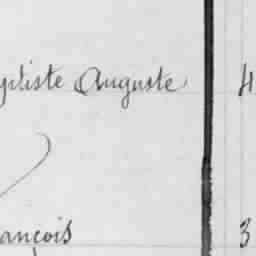 ptiste Auguste 4
ançois 3